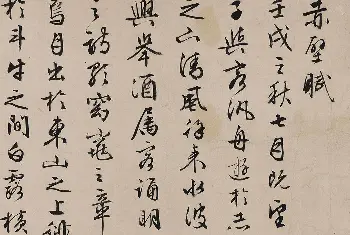 赤壁賦
壬戌之秋七月既望
子與客汎舟遊於赤
之下清風徐來水波
興舉酒属客誦明
之詩歌窈窕之章
焉月出於東山之上徘
於斗牛之間白露横